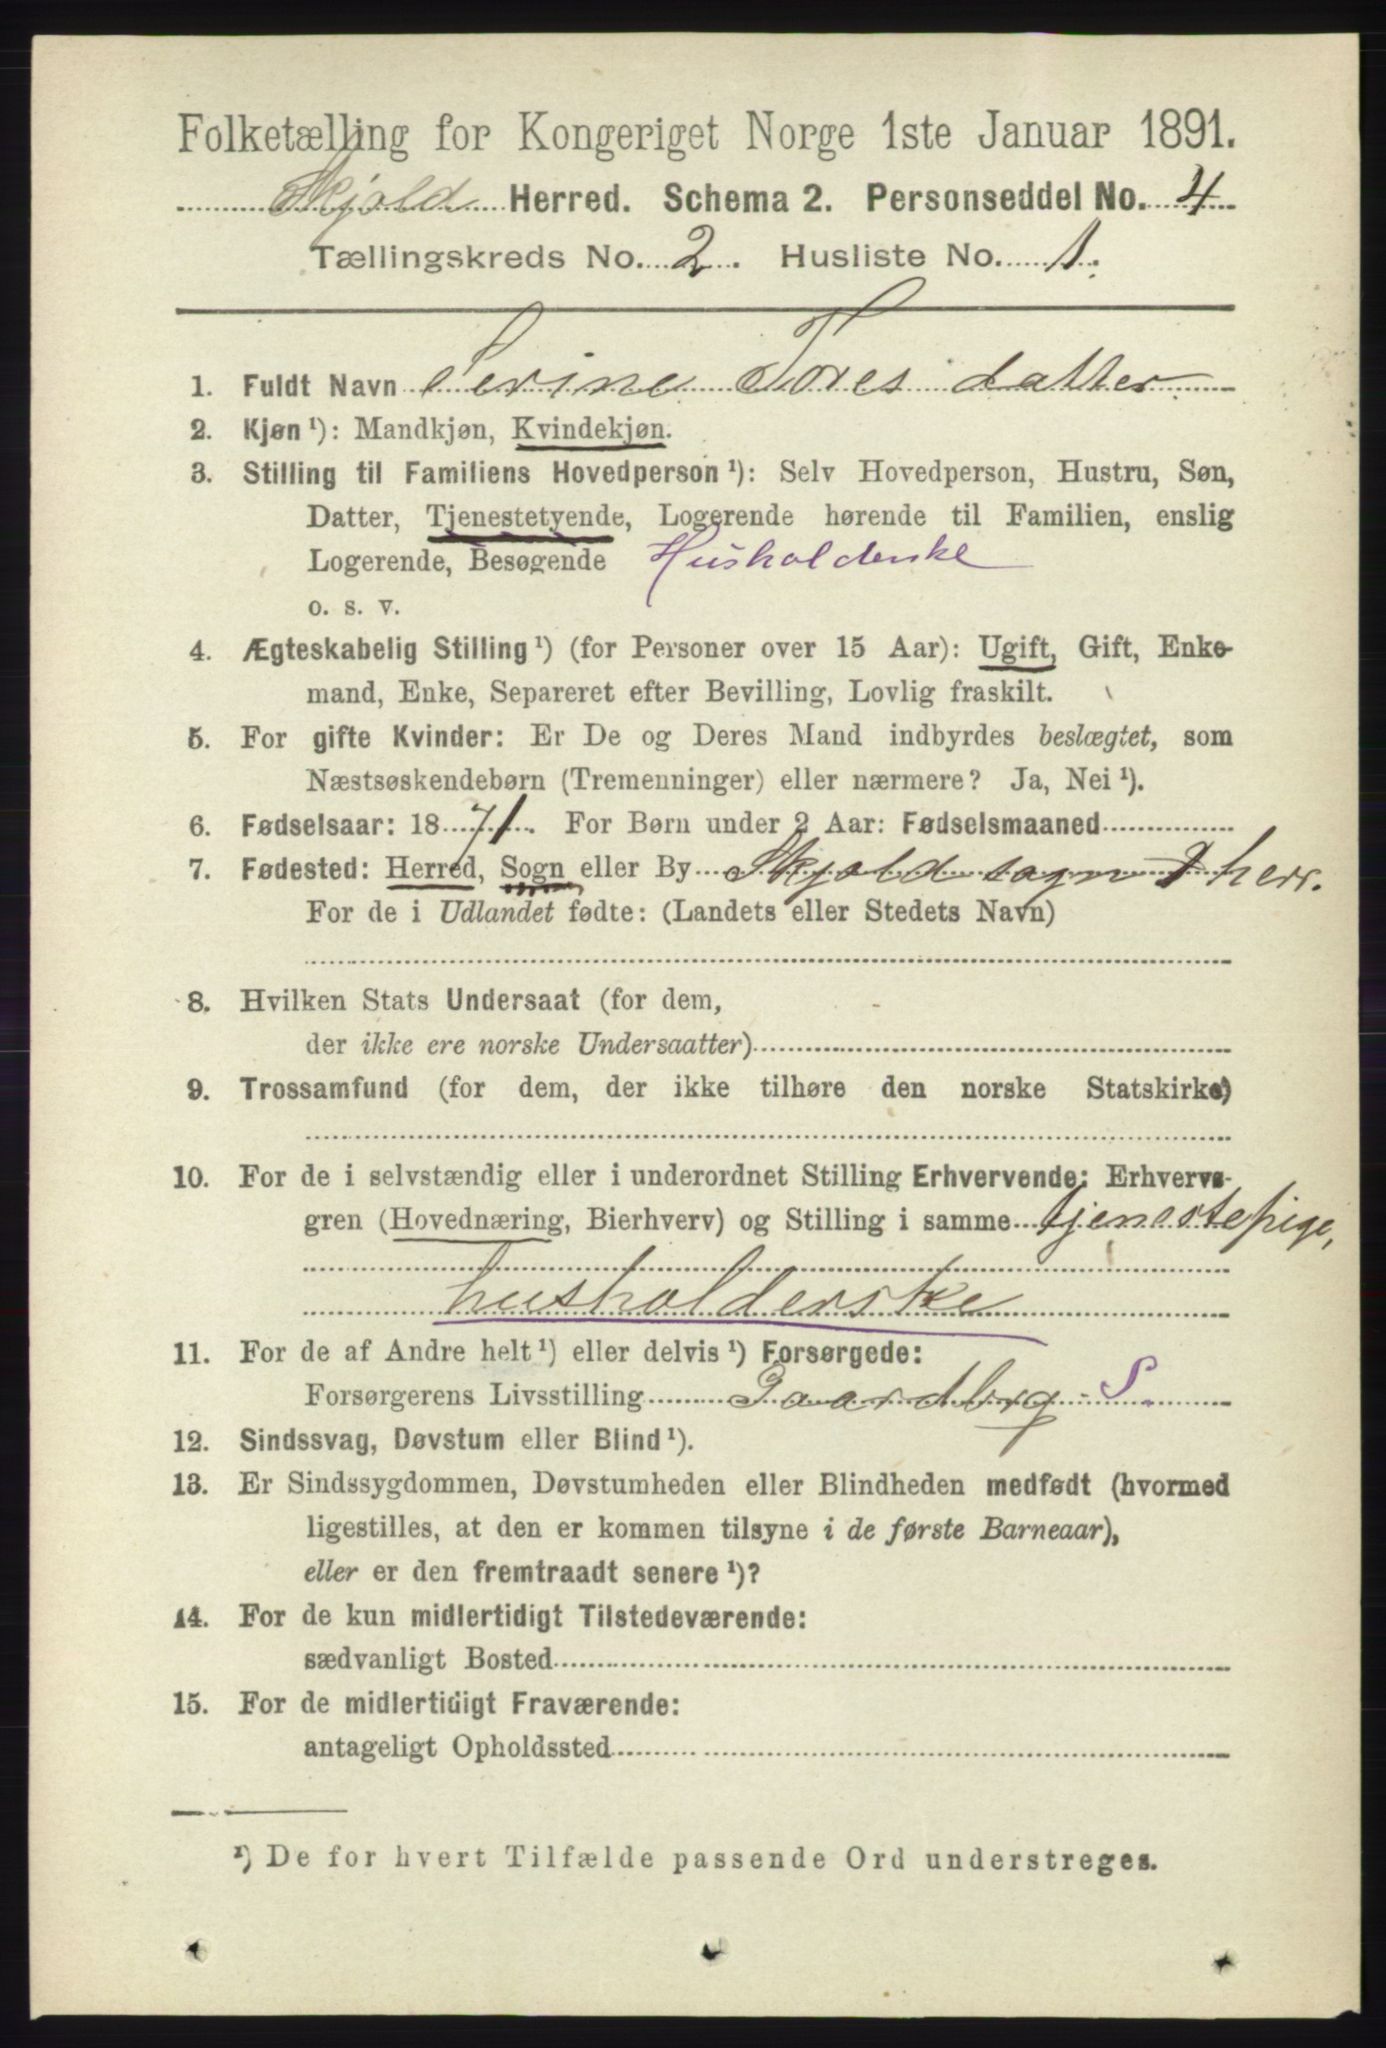 Folketælling for Kongeriget Norge 1ste Januar 1891.
Skjold Herred. Schema 2. Personseddel No. 4
Tællingskreds No. 2. Husliste No. 1.
1. Fuldt Navn Serine Toresdatter
2. Kjøn ¹): Mandkjøn, Kvindekjøn.
3. Stilling til Familiens Hovedperson ¹): Selv Hovedperson, Hustru, Søn,
Datter, Tjenestetyende, Logerende hørende til Familien, enslig
Logerende, Besøgende Husholderske
o. s. v.
4. Ægteskabelig Stilling ¹) (for Personer over 15 Aar): Ugift, Gift, Enke-
mand, Enke, Separeret efter Bevilling, Lovlig fraskilt.
5. For gifte Kvinder: Er De og Deres Mand indbyrdes beslægtet, som
Næstsøskendebørn (Tremenninger) eller nærmere? Ja, Nei ¹).
6. Fødselsaar: 1871. For Børn under 2 Aar: Fødselsmaaned
7. Fødested: Herred, Sogn eller By Skjold sogn & herr.
For de i Udlandet fødte: (Landets eller Stedets Navn)
8. Hvilken Stats Undersaat (for dem,
der ikke ere norske Undersaatter)
9. Trossamfund (for dem, der ikke tilhøre den norske Statskirke)
10. For de i selvstændig eller i underordnet Stilling Erhvervende: Erhvervs-
gren (Hovednæring, Bierhverv) og Stilling i samme tjenestepige,
husholderske
11. For de af Andre helt ¹) eller delvis ¹) Forsørgede:
Forsørgerens Livsstilling Gaardbrg. S.
12. Sindssvag, Døvstum eller Blind ¹).
13. Er Sindssygdommen, Døvstumheden eller Blindheden medfødt (hvormed
ligestilles, at den er kommen tilsyne i de første Barneaar),
eller er den fremtraadt senere ¹)?
14. For de kun midlertidigt Tilstedeværende:
sædvanligt Bosted
15. For de midlertidigt Fraværende:
antageligt Opholdssted
¹) De for hvert Tilfælde passende Ord understreges.